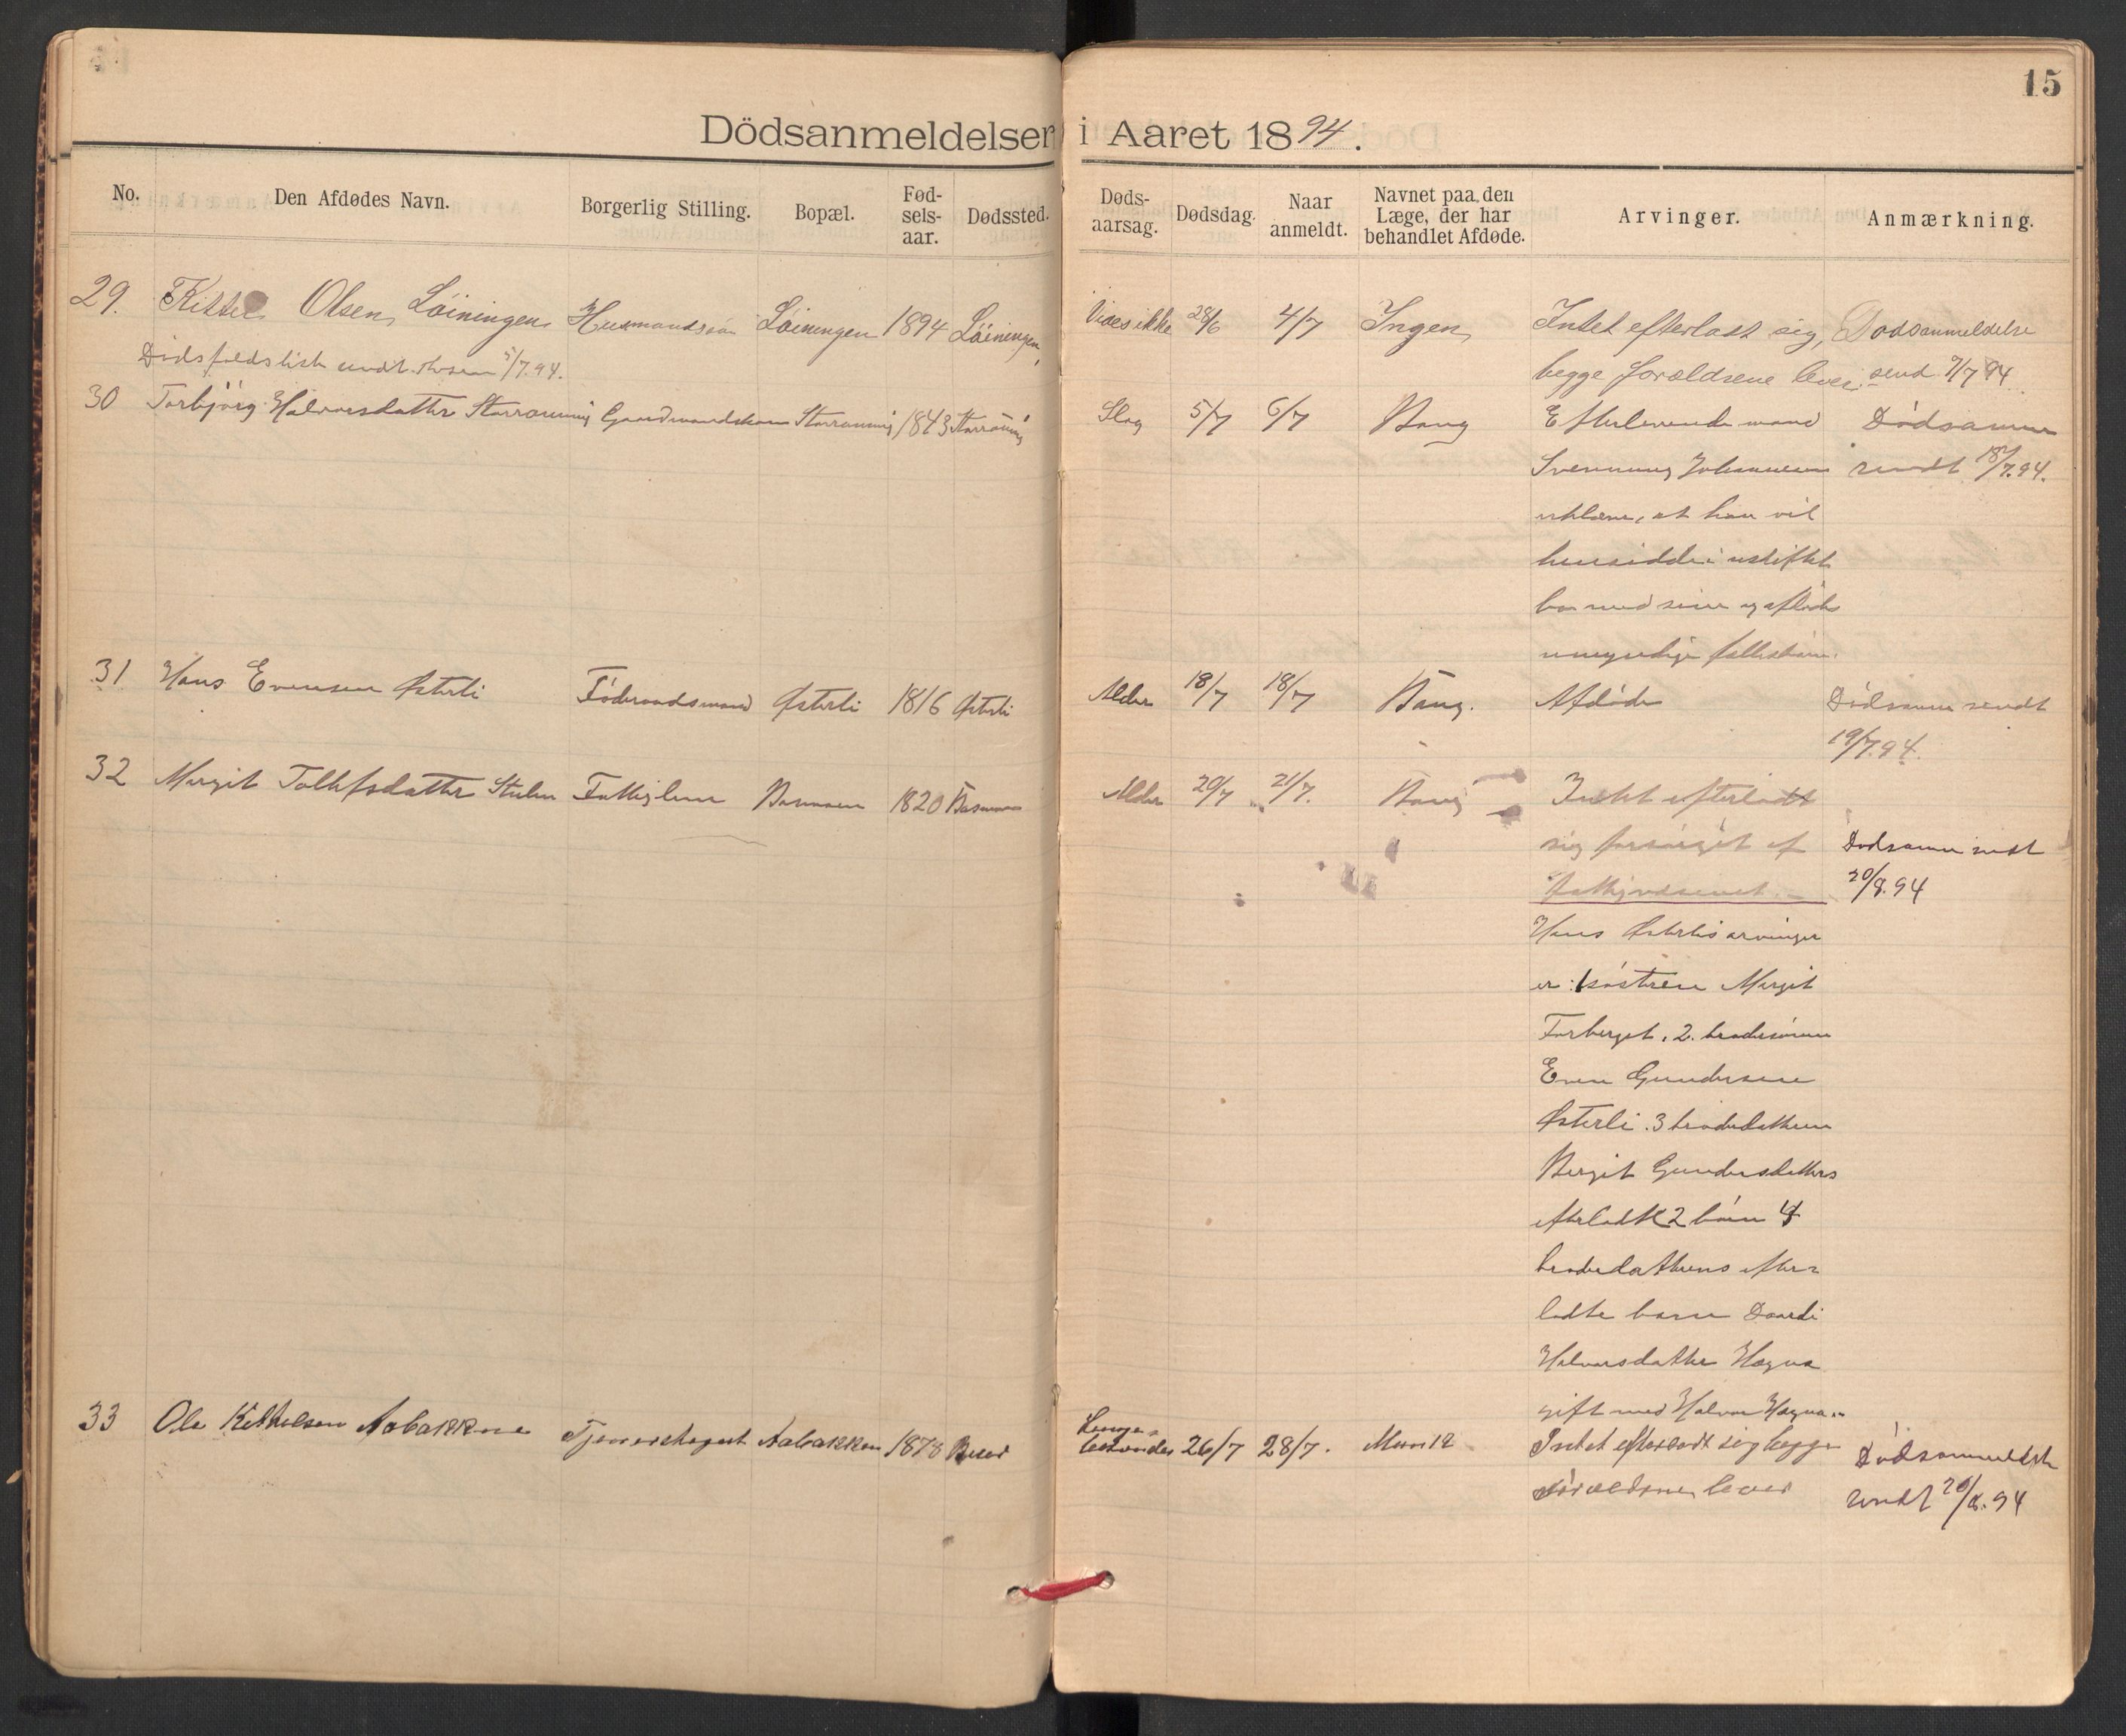 15
Dödsanmeldelser i Aaret 1894.
No. Den Afdødes Navn. Borgerlig Stilling. Bopæl. Fød-sels-aar. Dødssted. Døds-aarsag. Dødsdag. Naar anmeldt. Navnet paa den Læge, der har behandlet Afdøde. Arvinger. Anmærkning.
29. Kittel Olsen Löiningen Husmandssön Löiningen 1894 Löiningen Vides ikke 28/6 4/7 Ingen Intet efterladt sig, Dodsanmeldelse
Dödsfaldsliste sendt 5/7.94. begge forældrene lever. send 7/7 94
30 Torbjörg Halvorsdatter Gaardmandskone 1843 Slag 5/7 6/7 Bang Efterlevende mand Dödsanm
Svennung Johannesen sendt 18/7.94.
erklærer, at han vil
hensidde i uskiftet
bo med sine og afdödes
umyndige fællesbörn.
31 Hans Evensen Østerli Föderaadsmand Østerli 1816 Østerli Alder 18/7 18/7 Bang. Afdöde Dödsanm sendt
19/7.94.
32 Margit Tollefsdatter Fattiglem 1820 Alder 20/7 21/7. Bang Intet efterladt
sig forsörget af Dödsanm sendt
fattigvæsenet. 20/8.94
Hans Østerlis arvinger
er: 1 söstren Margit
Forberget, 2. brodersönnen
Even Gundersen
Østerli. 3 broderdatteren
Bergit Gundersdatters
efterladte 2 börn 4
broderdatterens efter
ladte barn
Halvorsdatter Hægna
gift med Halvor Hægna
33 Ole Kittelsen Aabakken Aabakken 1878 Lunge-
betændelse 26/7 28/7. Intet efterladt sig begge Dödsanmeldelse
forældrene lever sendt 20/8.94